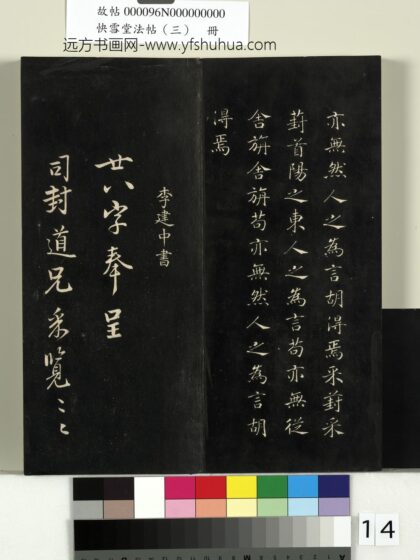 故帖 000096N000000000
快雪堂法帖（三） 冊
远方书画网-www.yfshuhua.com
亦無然人之為言胡得焉采葑采
葑首陽之東人之為言苟亦無從
舍旃舍旃苟亦無然人之為言胡
得焉
李建中書
廿八字奉呈
司封道兄采覽〻〻
14